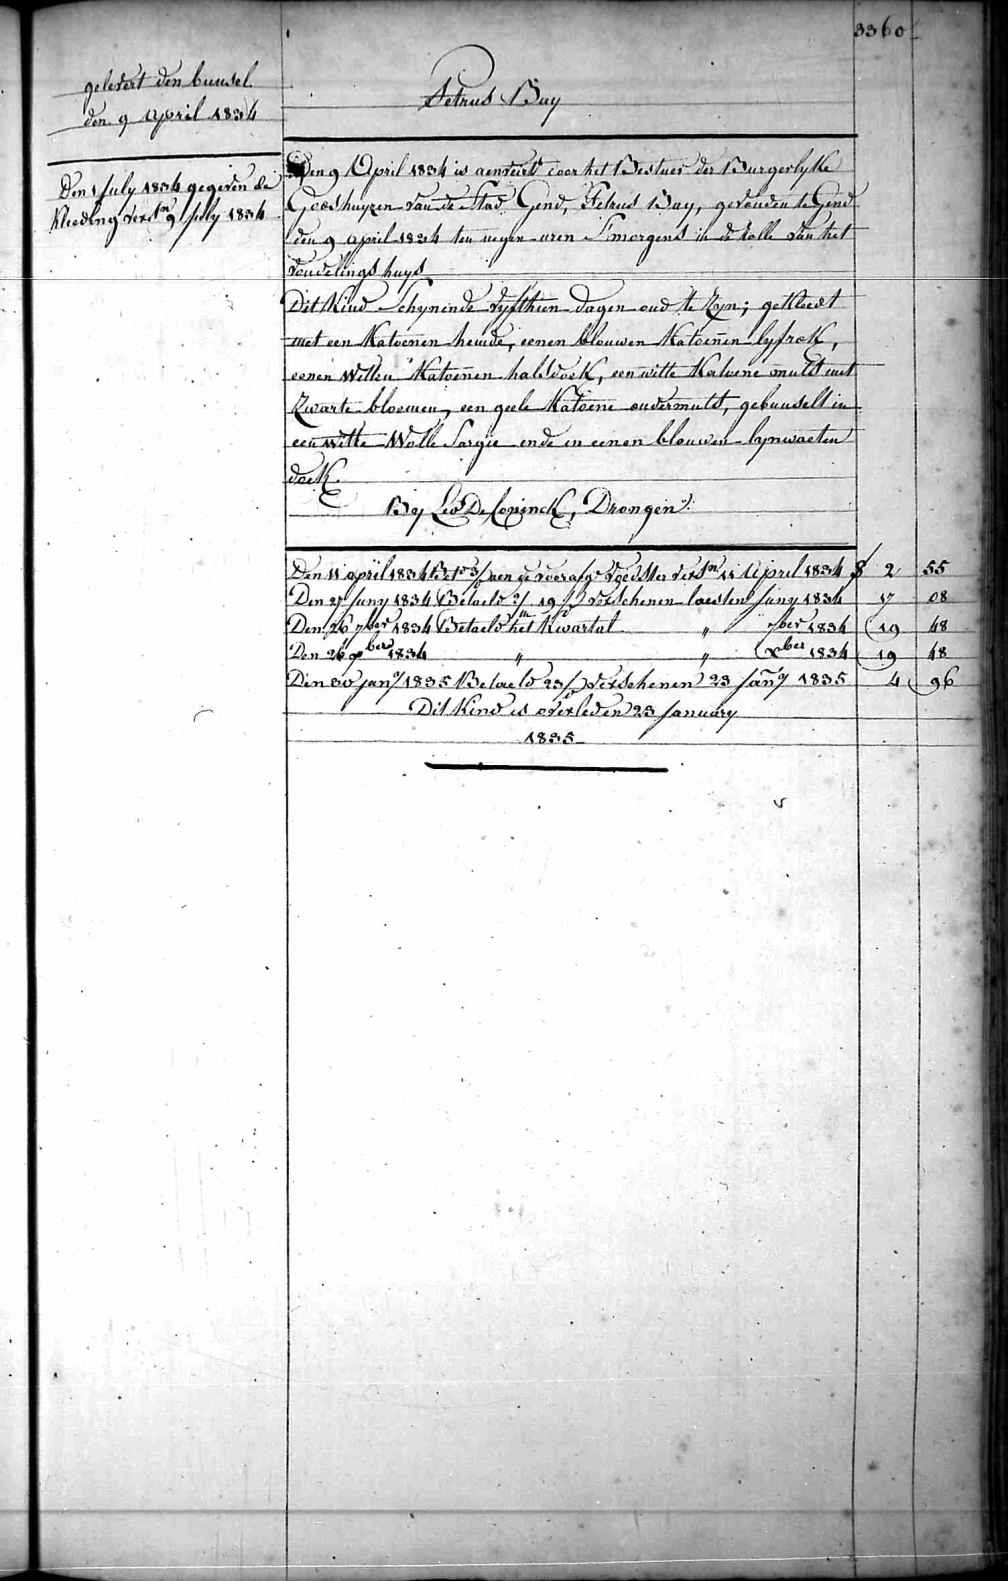 3360
gelevert den bunsel
den 9 April 1834
Petrus Bay
Den 1 July 1834 gegeven de
kleeding versn 9 July 1834
Den 9 April 1834 is aenveird door het Bestuer der Burgerlyke
Godshuyzen van de Stad Gend, Petrus Bay, gevonden te Gend
den 9 april 1834 ten negen uren S'morgens in de rolle van het
vondelings huys
Dit Kind Schynende vyfthien dagen oud te Zyn; gekleedt
met een Katoenen hemde, eenen blouwen Katoenen lyfrok,
eenen Witten Katoenen halsdoek, een witte Katoene muts met
Zwarte bloemen, een geele Katoene ondermuts, gebunselt in
een witte Wolle Sargie ende in eenen blouwen lynwaeten
doek.
By Leo De Coninck, Drongen
Den 11 april 1834 aen de voorasge voedster versn 11 April 1834 2 55
Den 27 Juny 1834 Betaeld verschenen laesten Juny 1834 17 08
Den 26 7ber 1834 Betaeld het Kwartal " 7ber 1834 19 48
Den 26 ber 1834 " " Xber 1834 19 48
Den 30 jany 1835 Betaeld 23 verschenen 23 Jany 1835 4 96
Dit Kind is overleden 23 January
1835